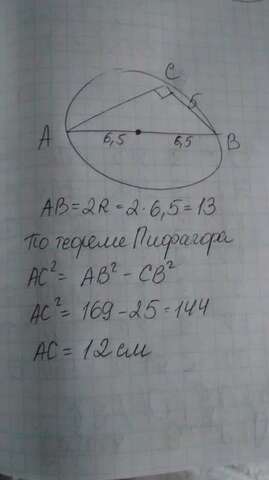 C
5
A
6,5
6,5
B
AB = 2R = 2·6,5 = 13
По теореме Пифагора
AC² = AB² - CB²
AC² = 169 - 25 = 144
AC = 12 см